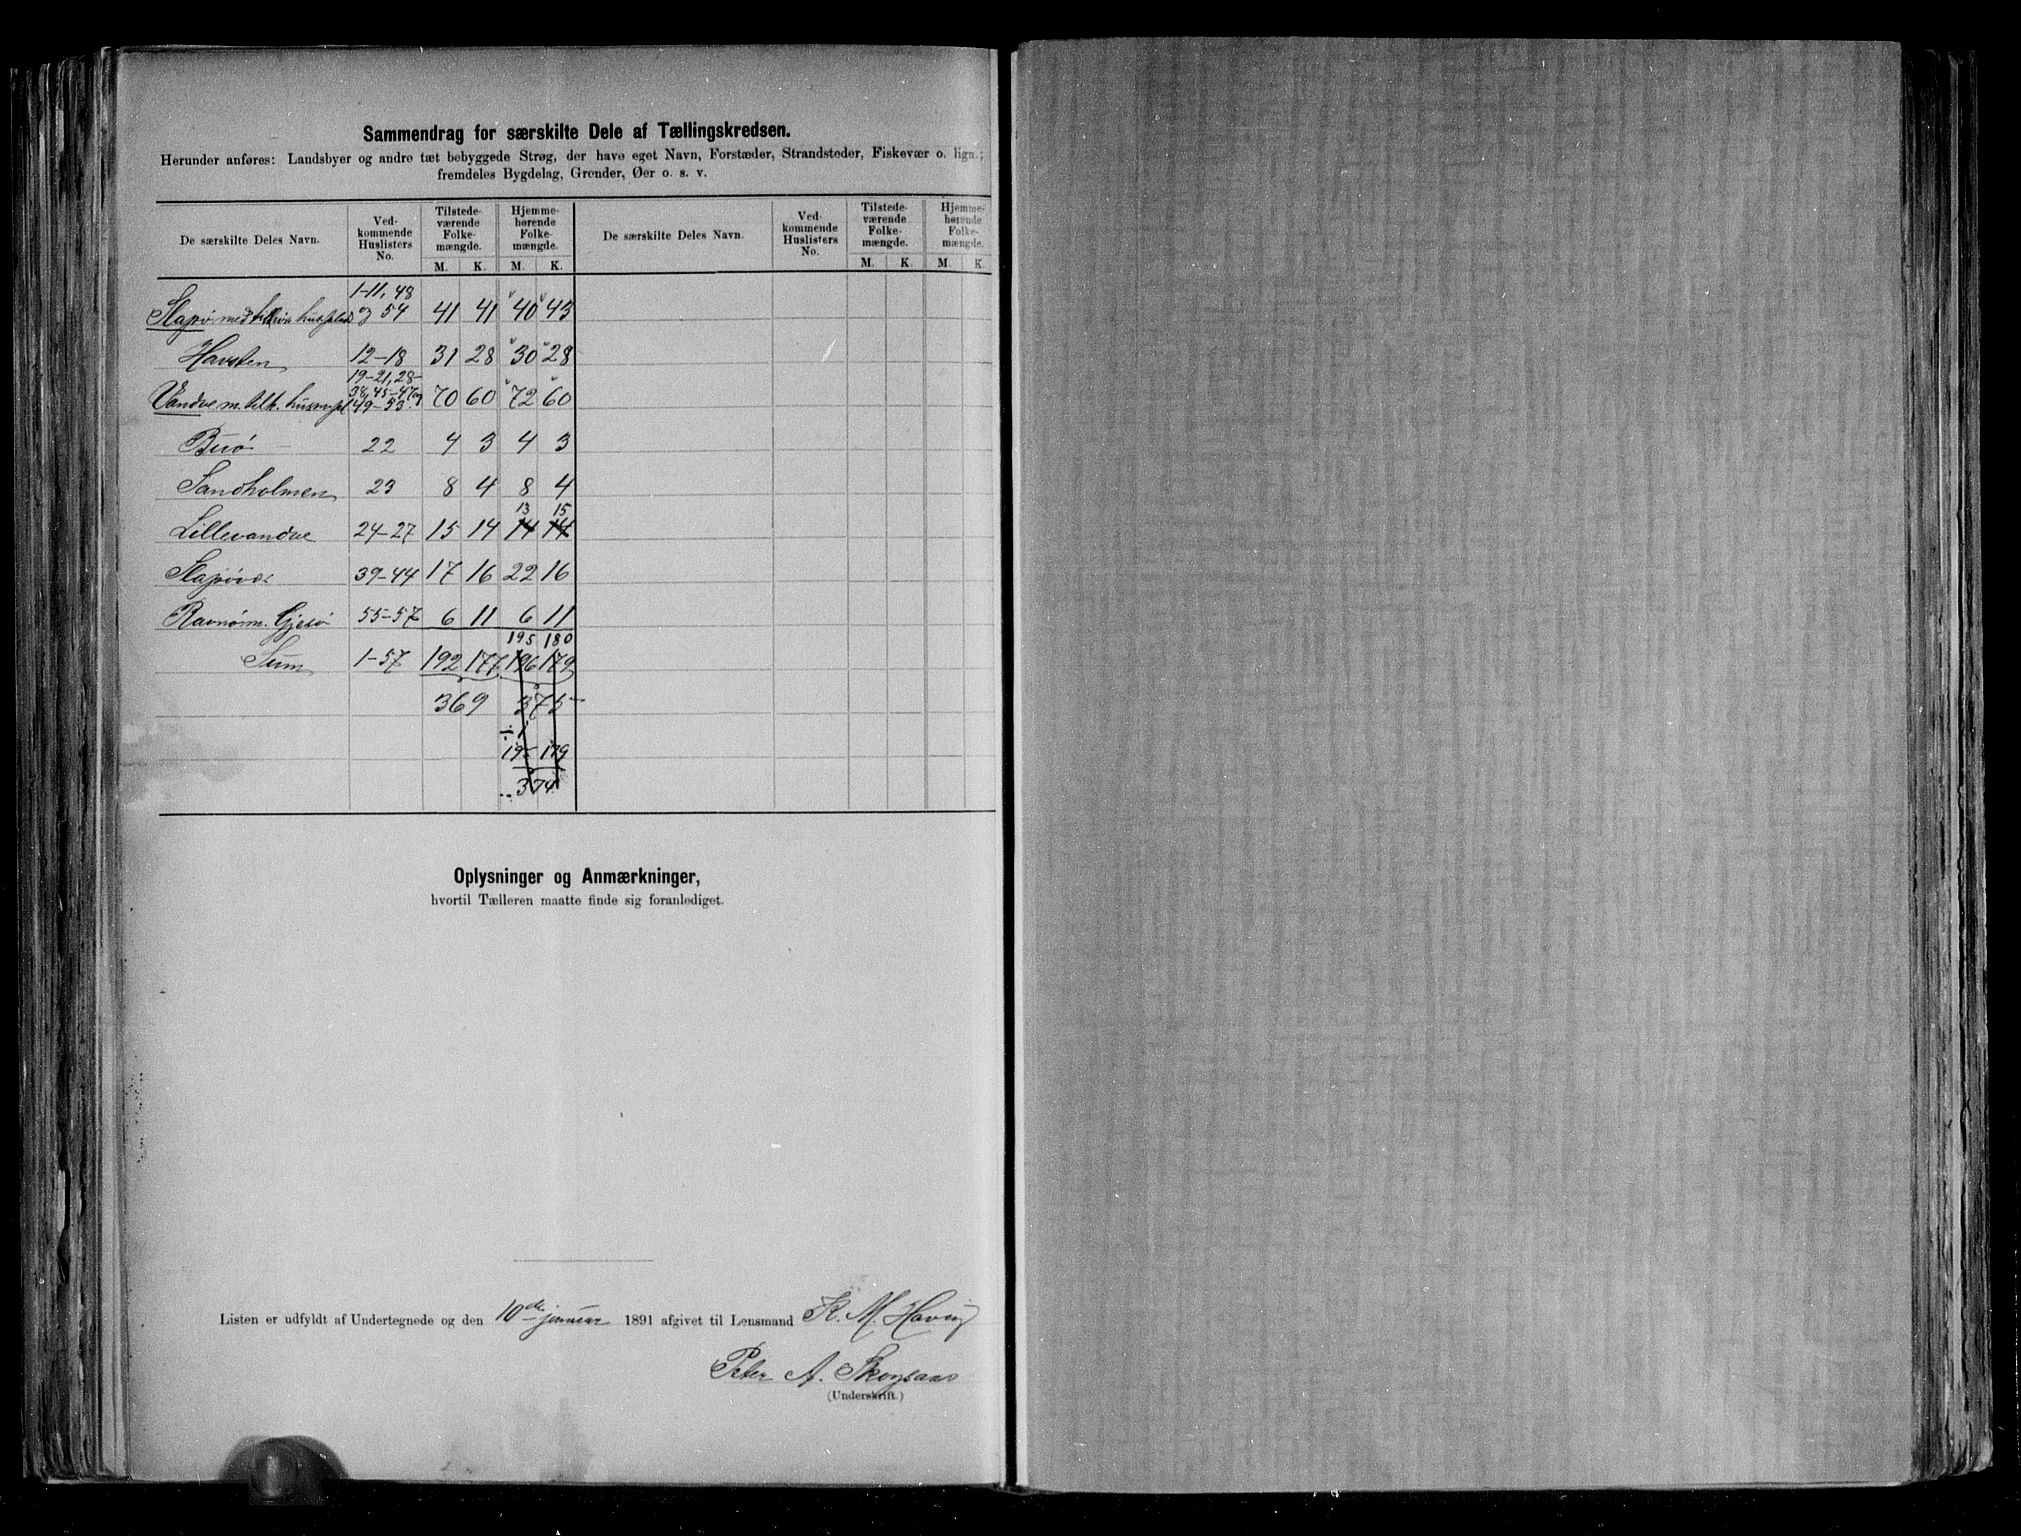 Sammendrag for særskilte Dele af Tællingskredsen.
Herunder anføres: Landsbyer og andre tæt bebyggede Strøg, der have eget Navn, Forstæder, Strandsteder, Fiskevær o. lign.;
fremdeles Bygdelag, Grender, Øer o. s. v.
De særskilte Deles Navn. Ved-kommende Huslisters No. Tilstede-værende Folke-mængde. Hjemme-hørende Folke-mængde. De særskilte Deles Navn. Ved-kommende Huslisters No. Tilstede-værende Folke-mængde. Hjemme-hørende Folke-mængde.
M. K. M. K. M. K. M. K.
1-11, 48
Slapø med og 54 41 41 40 43
Havsten 12-18 31 28 30 28
19-21, 28-
38, 45-47 og
Vandve m. tilh. husmpl. 49-53 70 60 72 60
Buø 22 4 3 4 3
Sandholmen 23 8 4 8 4
13 15
Lillevandve 24-27 15 14 14 14
Slapøvær 39-44 17 16 22 16
Ravnø m. Gjesø 55-57 6 11 6 11
195 180
Sum 1-57 192 177 196 179
369 375
÷1
195 179
374
Oplysninger og Anmærkninger,
hvortil Tælleren maatte finde sig foranlediget.
Listen er udfyldt af Undertegnede og den 10de januar 1891 afgivet til Lensmand K. M. Havig
Peter A. Skogsaas
(Underskrift.)